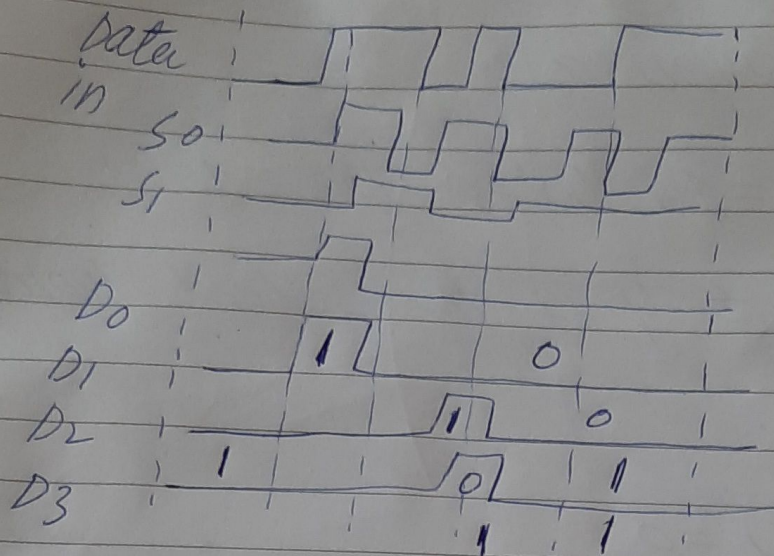 Data
in
S0
S1
D0
D1 1 0
D2 1 0
1 0 1
D3
1 1